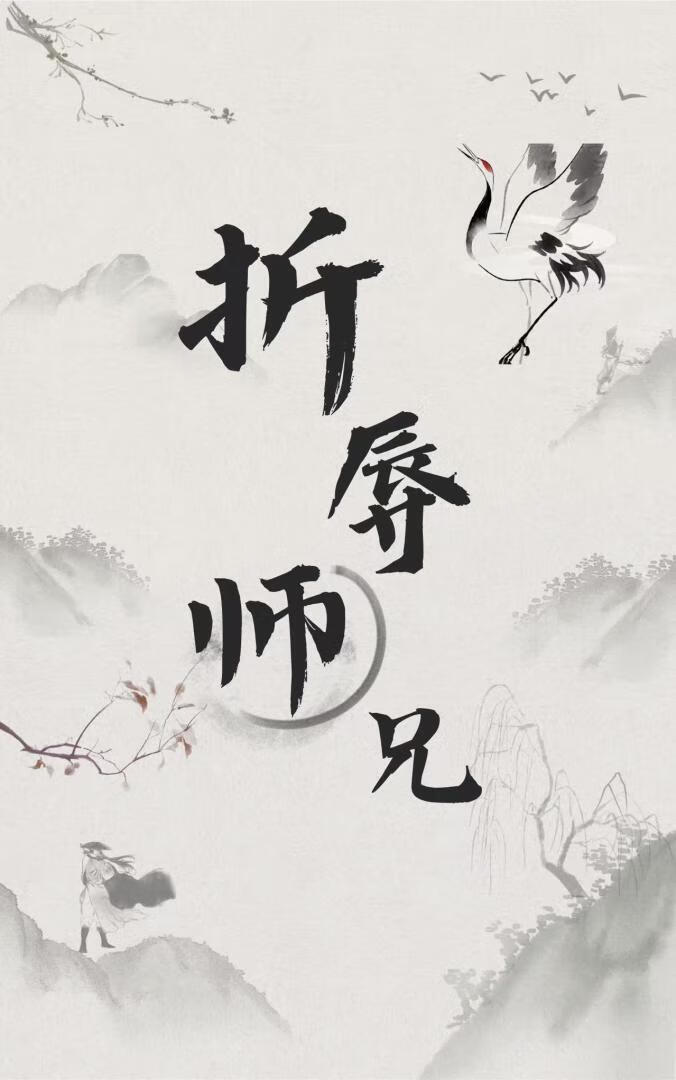 折辱师兄